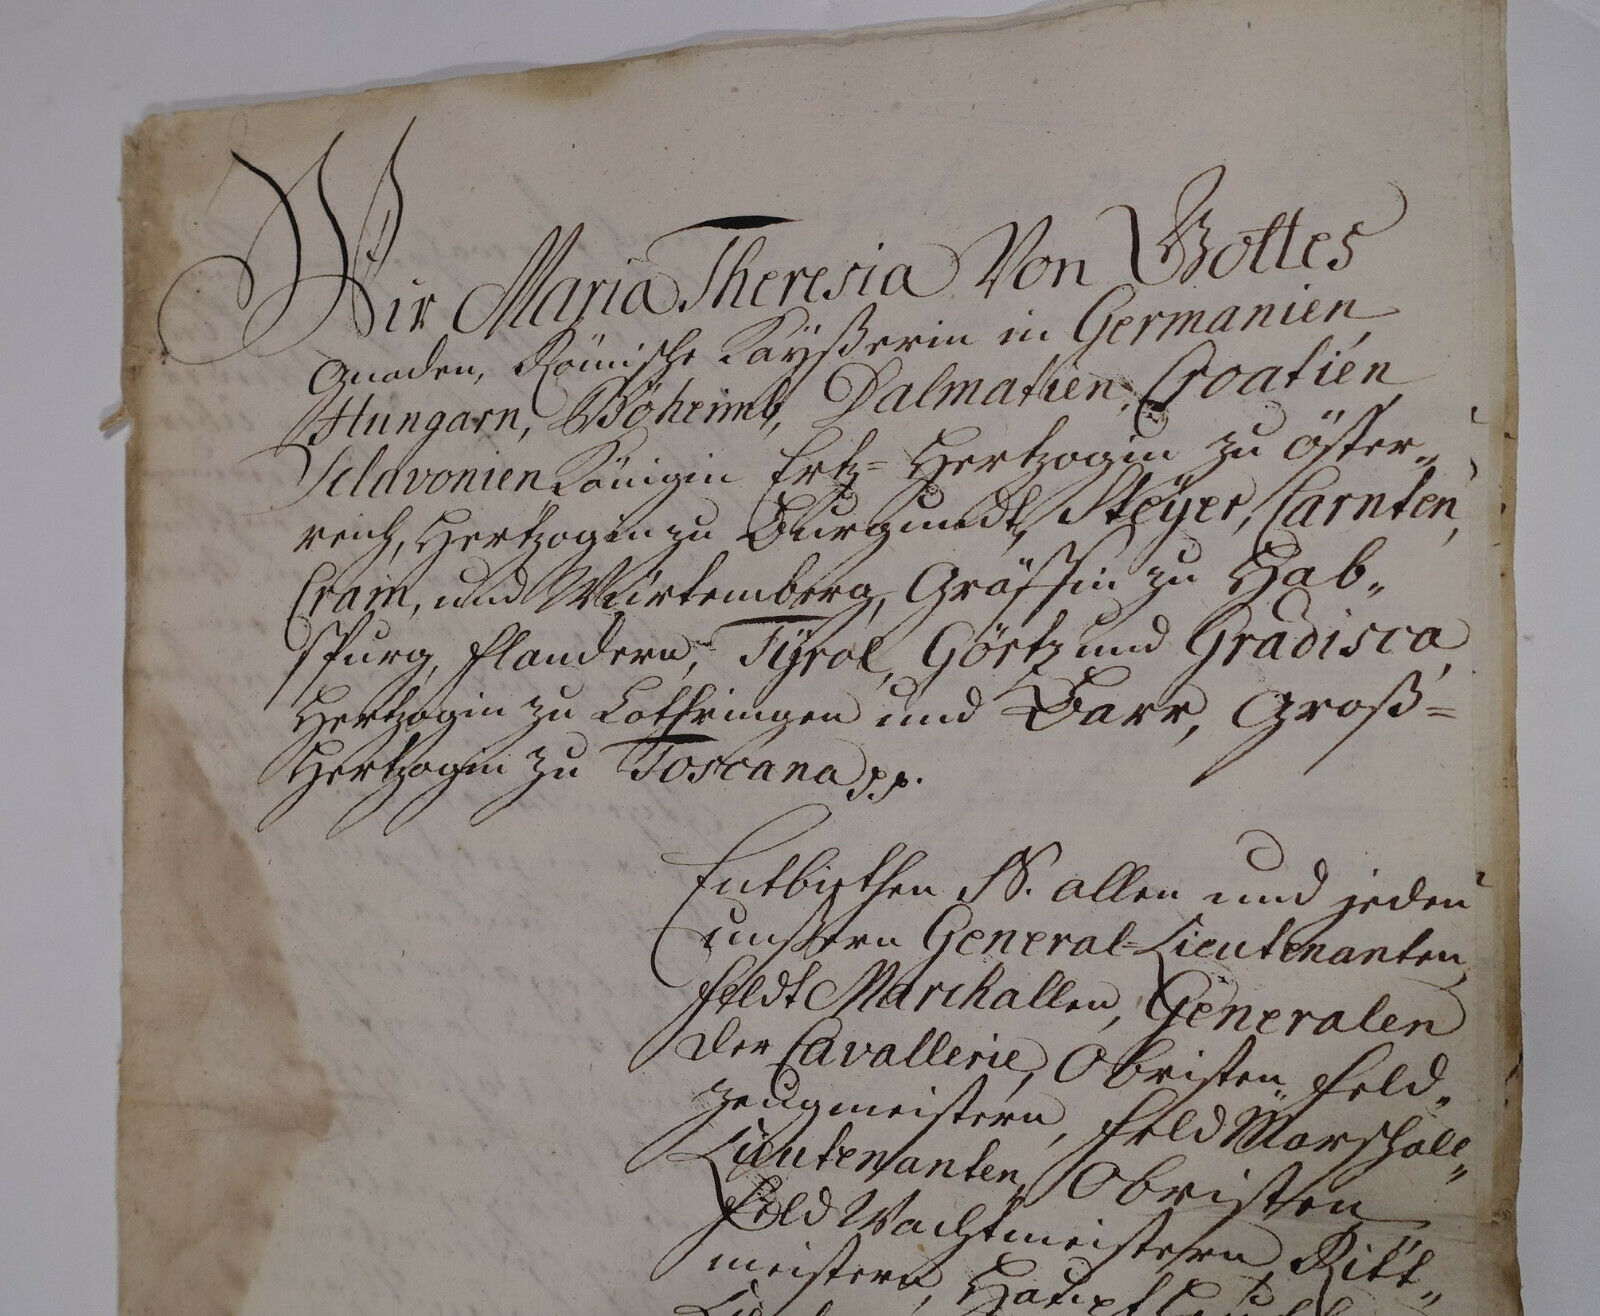 Wir Maria Theresia Von Gottes
Gnaden, Römische Kaÿßerin in Germanien,
Hungarn, Böheimb, Dalmatien, Croatien,
Sclavonien Königin Ertz= Hertzogin zu Öster„
reich, Hertzogin zu Burgundt, Steÿer, Carnten,
Crain, und Würtemberg, Gräffin zu Hab„
spurg, Flandern, Tÿrol, Görtz und Gradisca,
Hertzogin zu Lothringen und Barr, Groß=
Hertzogin zu Toscana p.p.
Entbiethen N. allen und jeden
unßern General=Lieutenanten,
Feldt Marchallen, Generalen
der Cavallerie, Obristen Feld„
zeugmeistern, Feld Marschall„
Lieutenanten, Obristen
Feld Wachtmeistern Ritt„
meistern,